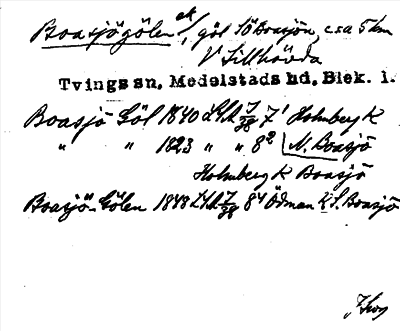 Boasjögölen ek/, göl SÖ Boasjön, c:sa 5 km
V Sillhövda
Tvings sn, Medelstads hd, Blek. l.
Boasjö Göl 1840 7¹ Holmberg K
" " 1823 " " 8² N. Boasjö
Holmberg K Boasjö
Boasjö-Gölen 1848 84 Ödman K S. Boasjö